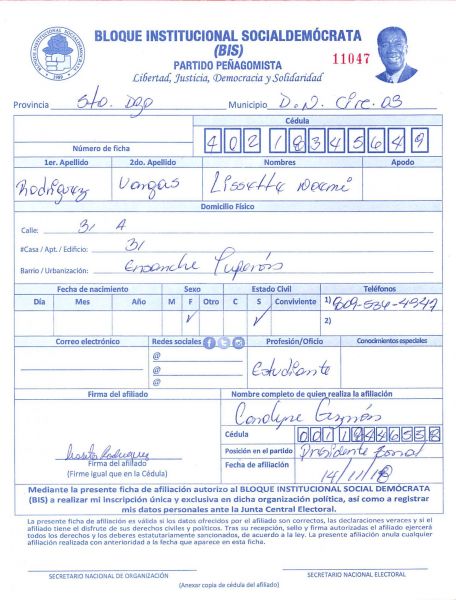 BLOQUE INSTITUCIONAL SOCIALDEMÓCRATA
(BIS)
PARTIDO PEÑAGOMISTA
Libertad, Justicia, Democracia y Solidaridad
11047
Provincia Sto. Dgo Municipio D.N. Circ. 03
Cédula
Número de ficha 402 1834564 9
1er. Apellido 2do. Apellido Nombres Apodo
Rodriguez Vargas Lissette Noemi
Domicilio Físico
Calle: 31 A
#Casa / Apt. / Edificio: 31
Barrio / Urbanización: Ensanche Luperón
Fecha de nacimiento Sexo Estado Civil Teléfonos
Día Mes Año M F Otro C S Conviviente 1) 809-536-4947
2)
Correo electrónico Redes sociales Profesión/Oficio Conocimientos especiales
@
@
@
Estudiante
Firma del afiliado Nombre completo de quien realiza la afiliación
Guzmán
Cédula 001 1844633 8
Posición en el partido Presidente zonal
Firma del afiliado
(Firme igual que en la Cédula)
Fecha de afiliación 14/11/18
Mediante la presente ficha de afiliación autorizo al BLOQUE INSTITUCIONAL SOCIAL DEMÓCRATA
(BIS) a realizar mi inscripción única y exclusiva en dicha organización política, así como a registrar
mis datos personales ante la Junta Central Electoral.
La presente ficha de afiliación es válida si los datos ofrecidos por el afiliado son correctos, las declaraciones veraces y si el
afiliado tiene el disfrute de sus derechos civiles y políticos. Tras su recepción, sello y firma autorizadas el afiliado ejercerá
todos los derechos y los deberes estatutariamente sancionados, de acuerdo a la ley. La presente afiliación anula cualquier
afiliación realizada con anterioridad a la fecha que aparece en esta ficha.
SECRETARIO NACIONAL DE ORGANIZACIÓN SECRETARIO NACIONAL ELECTORAL
(Anexar copia de cédula del afiliado)